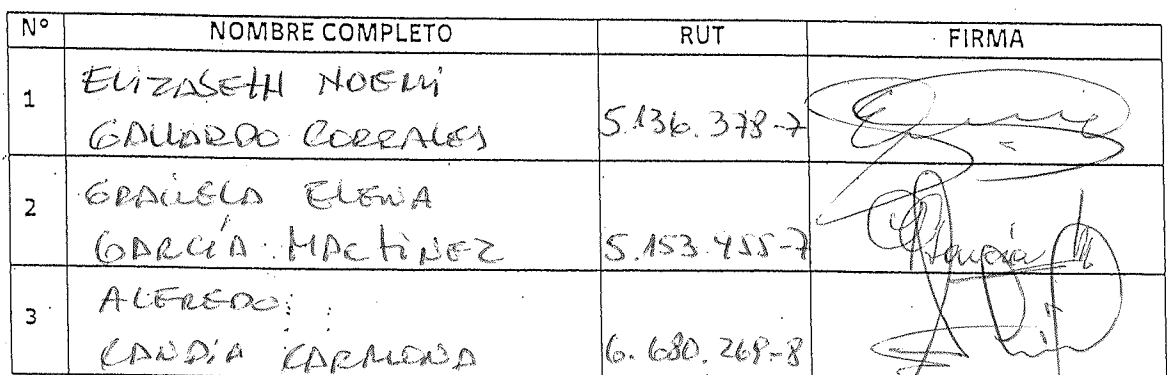 N° NOMBRE COMPLETO RUT FIRMA
1 ELIZABETH NOEMI
GALLARDO CORRALES 5.136.378-7
2 GRACIELA ELENA
GARCÍA MARTINEZ 5.153.455-7
3 ALFREDO
CANDIA CARMONA 6.680.269-8